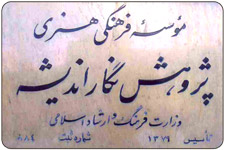 مؤسسه فرهنگی هنری
پژوهش نگار اندیشه
وزارت فرهنگ و ارشاد اسلامی
تأسیس ۱۳۷۹ شماره ثبت